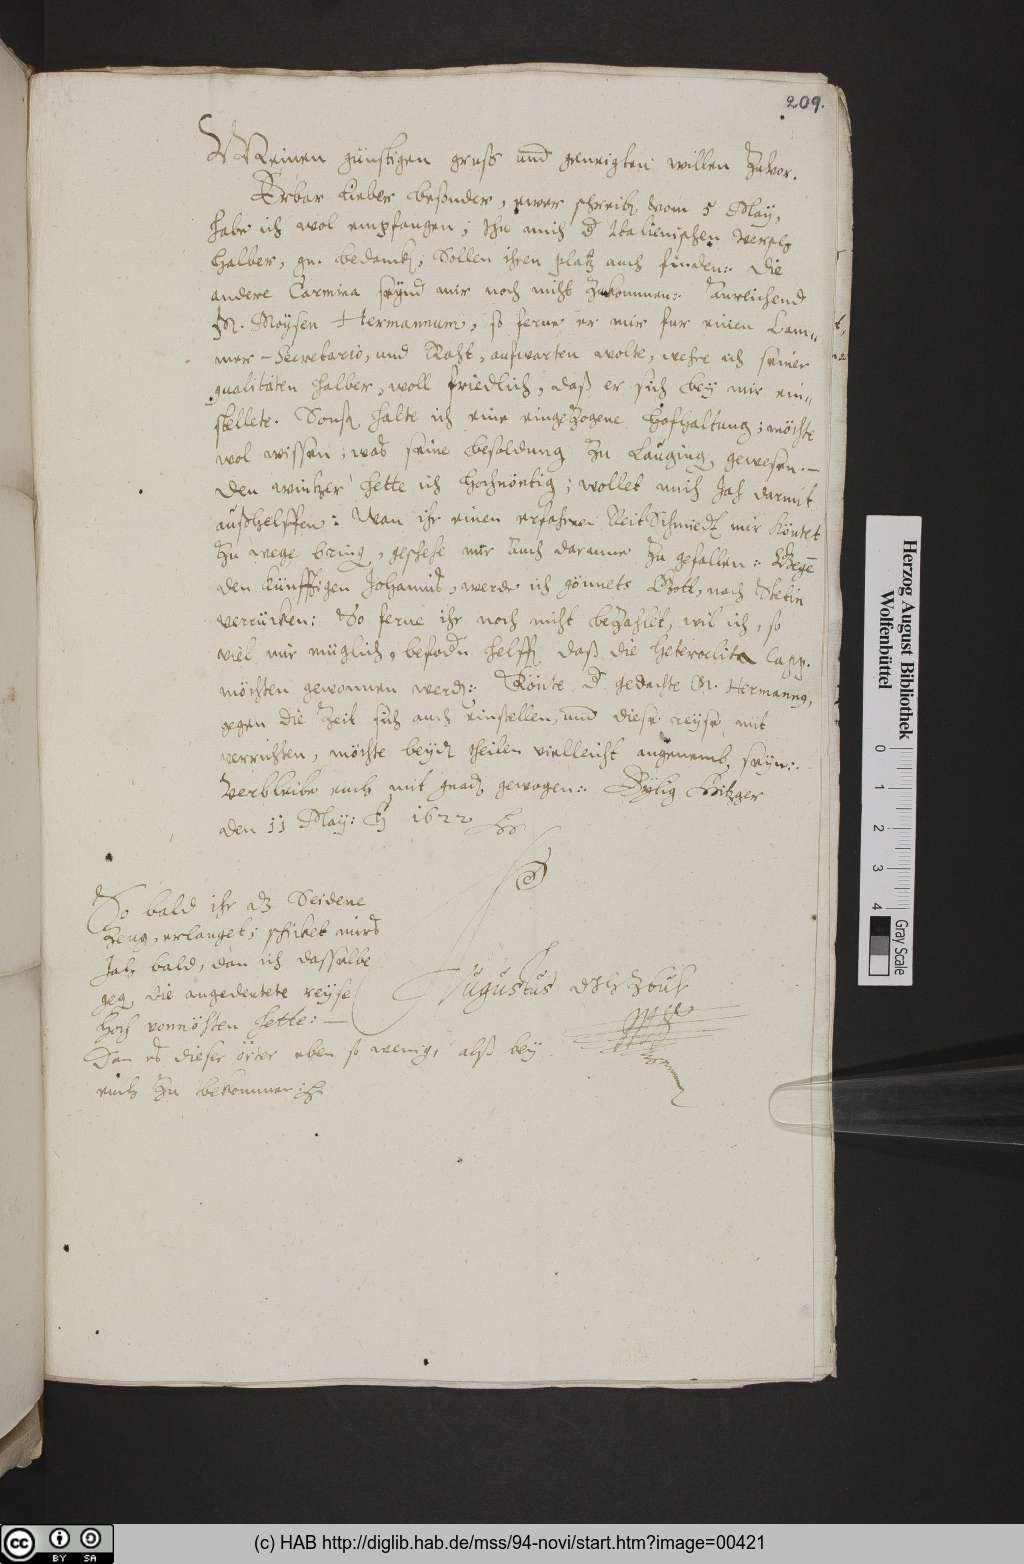 209.
Meinen günstigen gruss und geneigten willen zuvor.
Erbar lieber besonder, ewer schreib. vom 5 May,
habe ich wol empfangen; thu mich d Italienischen
halber, gn. bedanck; Sollen ihren platz auch finden: Die
andere Carmina seynd mir noch nicht zukommen: Anreichend
M. Moysen Hermannum, so ferne er mir fur einen Cam=
mer-Secretario, und Raht, aufwarten wolte, were ich seiner
qualitäten halber, woll friedlich, daß er sich bey mir ein=
stellete. Sonst halte ich eine eingezogene Hofhaltung; möchte
wol wissen, was seine besoldung zu Lauging, gewesen.
Den wintzer hette ich hochnöntig; wollet mich Jah darmit
außhelffen: Wan ihr einen erfahrnen Reit Schmiedt mir köntet
zu wege bring, geschehe mir auch daranne zu gefallen: Gege
den künfftigen Johannis, werde ich gönnets Gott, nach Stetin
verrücken: So ferne ihr noch nicht bezahlet, wil ich, so
viel mir müglich, befodn helff daß die heteroclita Capp.
möchten gewonnen werd: Könte d gedachte M. Hermanng,
gegen die Zeit sich auch einstellen, und diese reyse mit
verrichten, möchte beyd theilen vielleicht angenemb, seyn:
Verbleibe euch mit gnad gewogen: Eylig Hitzger
den 11 May: 1622
So bald ihr dz Seidene
Zeug, erlanget; schicket mirs
Jah bald, dan ich dasselbe
geg die angedeutete reyse
hoch vonnöhten hette: —
Dan es dieser örter eben so wenig, alß bey
euch zu bekommen ist
Augustus DHzBuL
Herzog August Bibliothek
Wolfenbüttel
0 1 2 3 4
Gray Scale
cc BY SA
(c) HAB http://diglib.hab.de/mss/94-novi/start.htm?image=00421